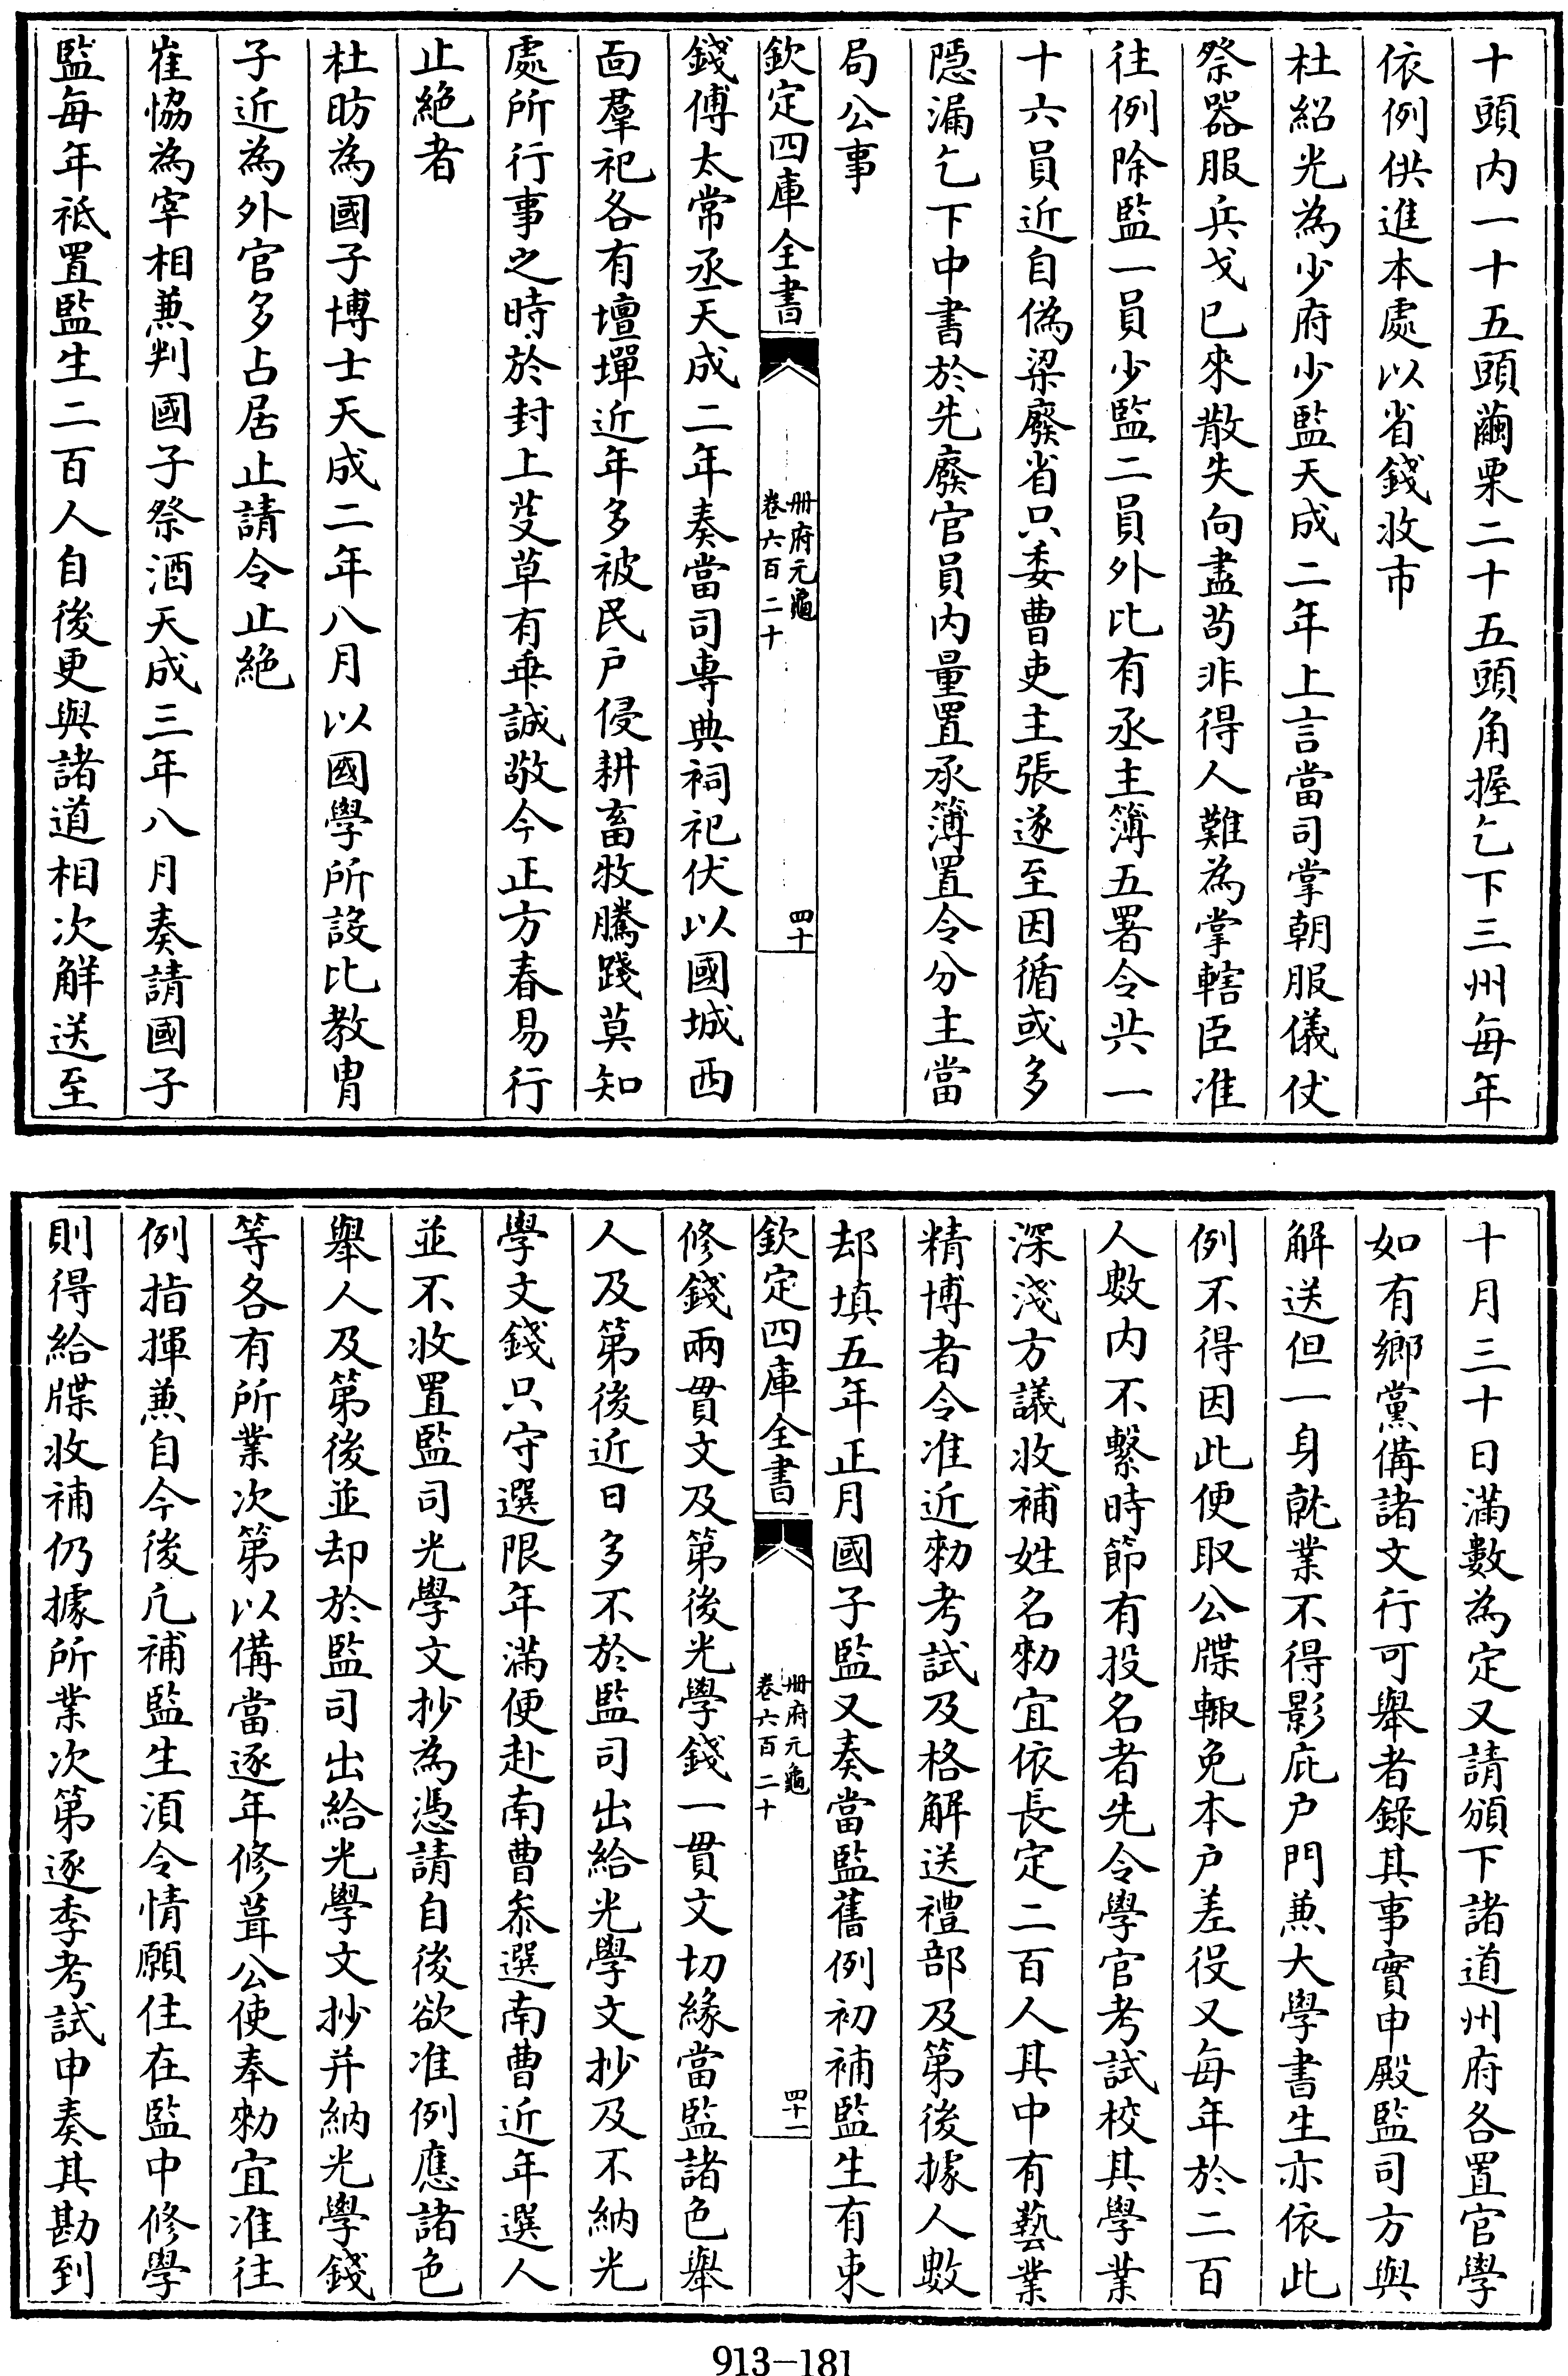 十頭内一十五頭繭栗二十五頭角握乞下三州每年
依例供進本處以省錢收市
杜紹光為少府少監天成二年上言當司掌朝服儀仗
祭器服兵戈已來散失向盡茍非得人難為掌轄臣准
往例除監一員少監二員外比有丞主簿五署令共一
十六員近自偽梁廢省只委曹吏主張遂至因循或多
隱漏乞下中書於先廢官員内量置承簿置令分主當
局公事
欽定四庫全書
冊府元龜
卷六百二十
四十
錢傅太常丞天成二年奏當司專典祠祀伏以國城西
面羣祀各有壇墠近年多被民户侵耕畜牧騰踐莫知
處所行事之時於封上芟草有乖誠敬今正方春易行
止絶者
杜昉為國子博士天成二年八月以國學所設比教胄
子近為外官多占居止請令止絶
崔協為宰相兼判國子祭酒天成三年八月奏請國子
監每年祗置監生二百人自後更與諸道相次解送至
十月三十日滿數為定又請頒下諸道州府各置官學
如有鄉黨備諸文行可舉者錄其事實申殿監司方與
解送但一身就業不得影庇户門兼大學書生亦依此
例不得因此便取公牒輙免本户差役又每年於二百
人數内不繫時節有投名者先令學官考試校其學業
深淺方議收補姓名勑宜依長定二百人其中有藝業
精博者令准近勑考試及格解送禮部及第後據人數
却填五年正月國子監又奏當監舊例初補監生有束
欽定四庫全書
冊府元龜
卷六百二十
四十一
修錢兩貫文及第後光學錢一貫文切緣當監諸色舉
人及第後近日多不於監司出給光學文抄及不納光
學文錢只守選限年滿便赴南曹叅選南曹近年選人
並不收置監司光學文抄為憑請自後欲准例應諸色
舉人及第後並却於監司出給光學文抄并納光學錢
等各有所業次第以備當逐年修葺公使奉勑宜准往
例指揮兼自今後凡補監生須令情願住在監中修學
則得給牒收補仍據所業次第逐季考試申奏其勘到
913-181